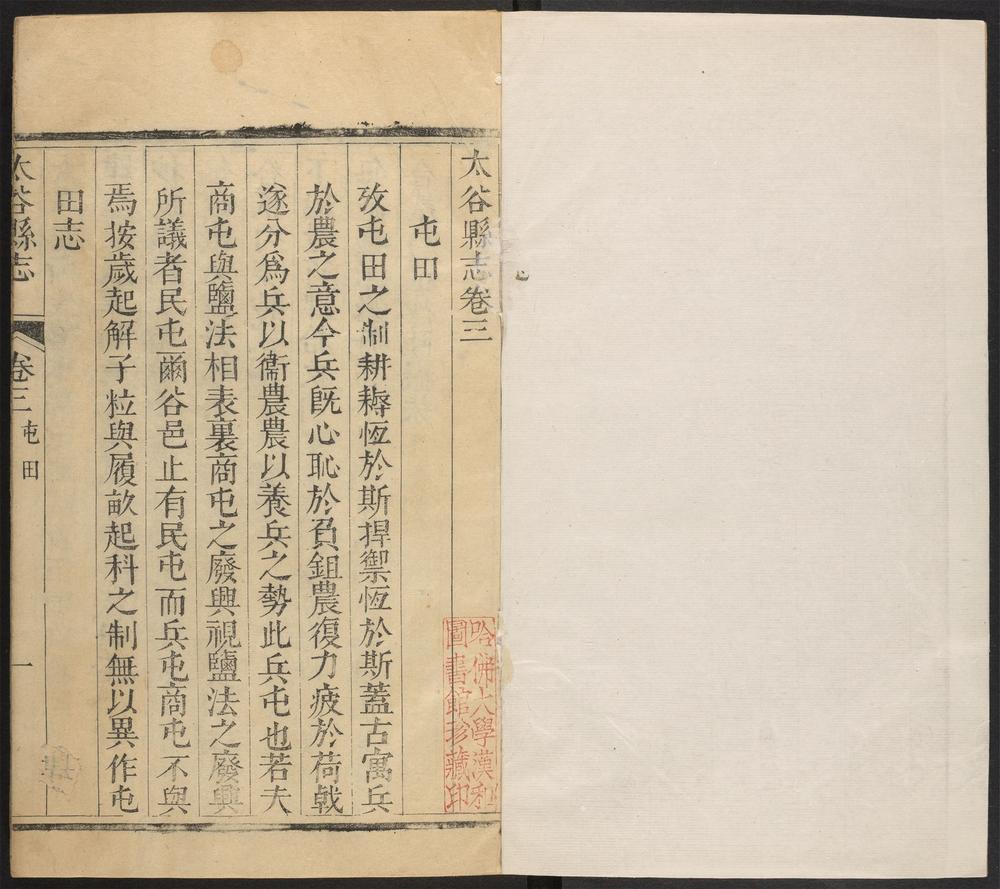 太谷縣志卷三
屯田
攷屯田之制耕耨恆於斯捍禦恆於斯蓋古寓兵
於農之意今兵既心恥於負鉏農復力疲於荷戟
遂分爲兵以衞農農以養兵之勢此兵屯也若夫
商屯與鹽法相表裏商屯之廢興視鹽法之廢興
所議者民屯爾谷邑止有民屯而兵屯商屯不與
焉按歲起解子粒與履畝起科之制無以異作屯
田志
太谷縣志
卷三
屯田
一
哈佛大學漢和
圖書館珍藏印